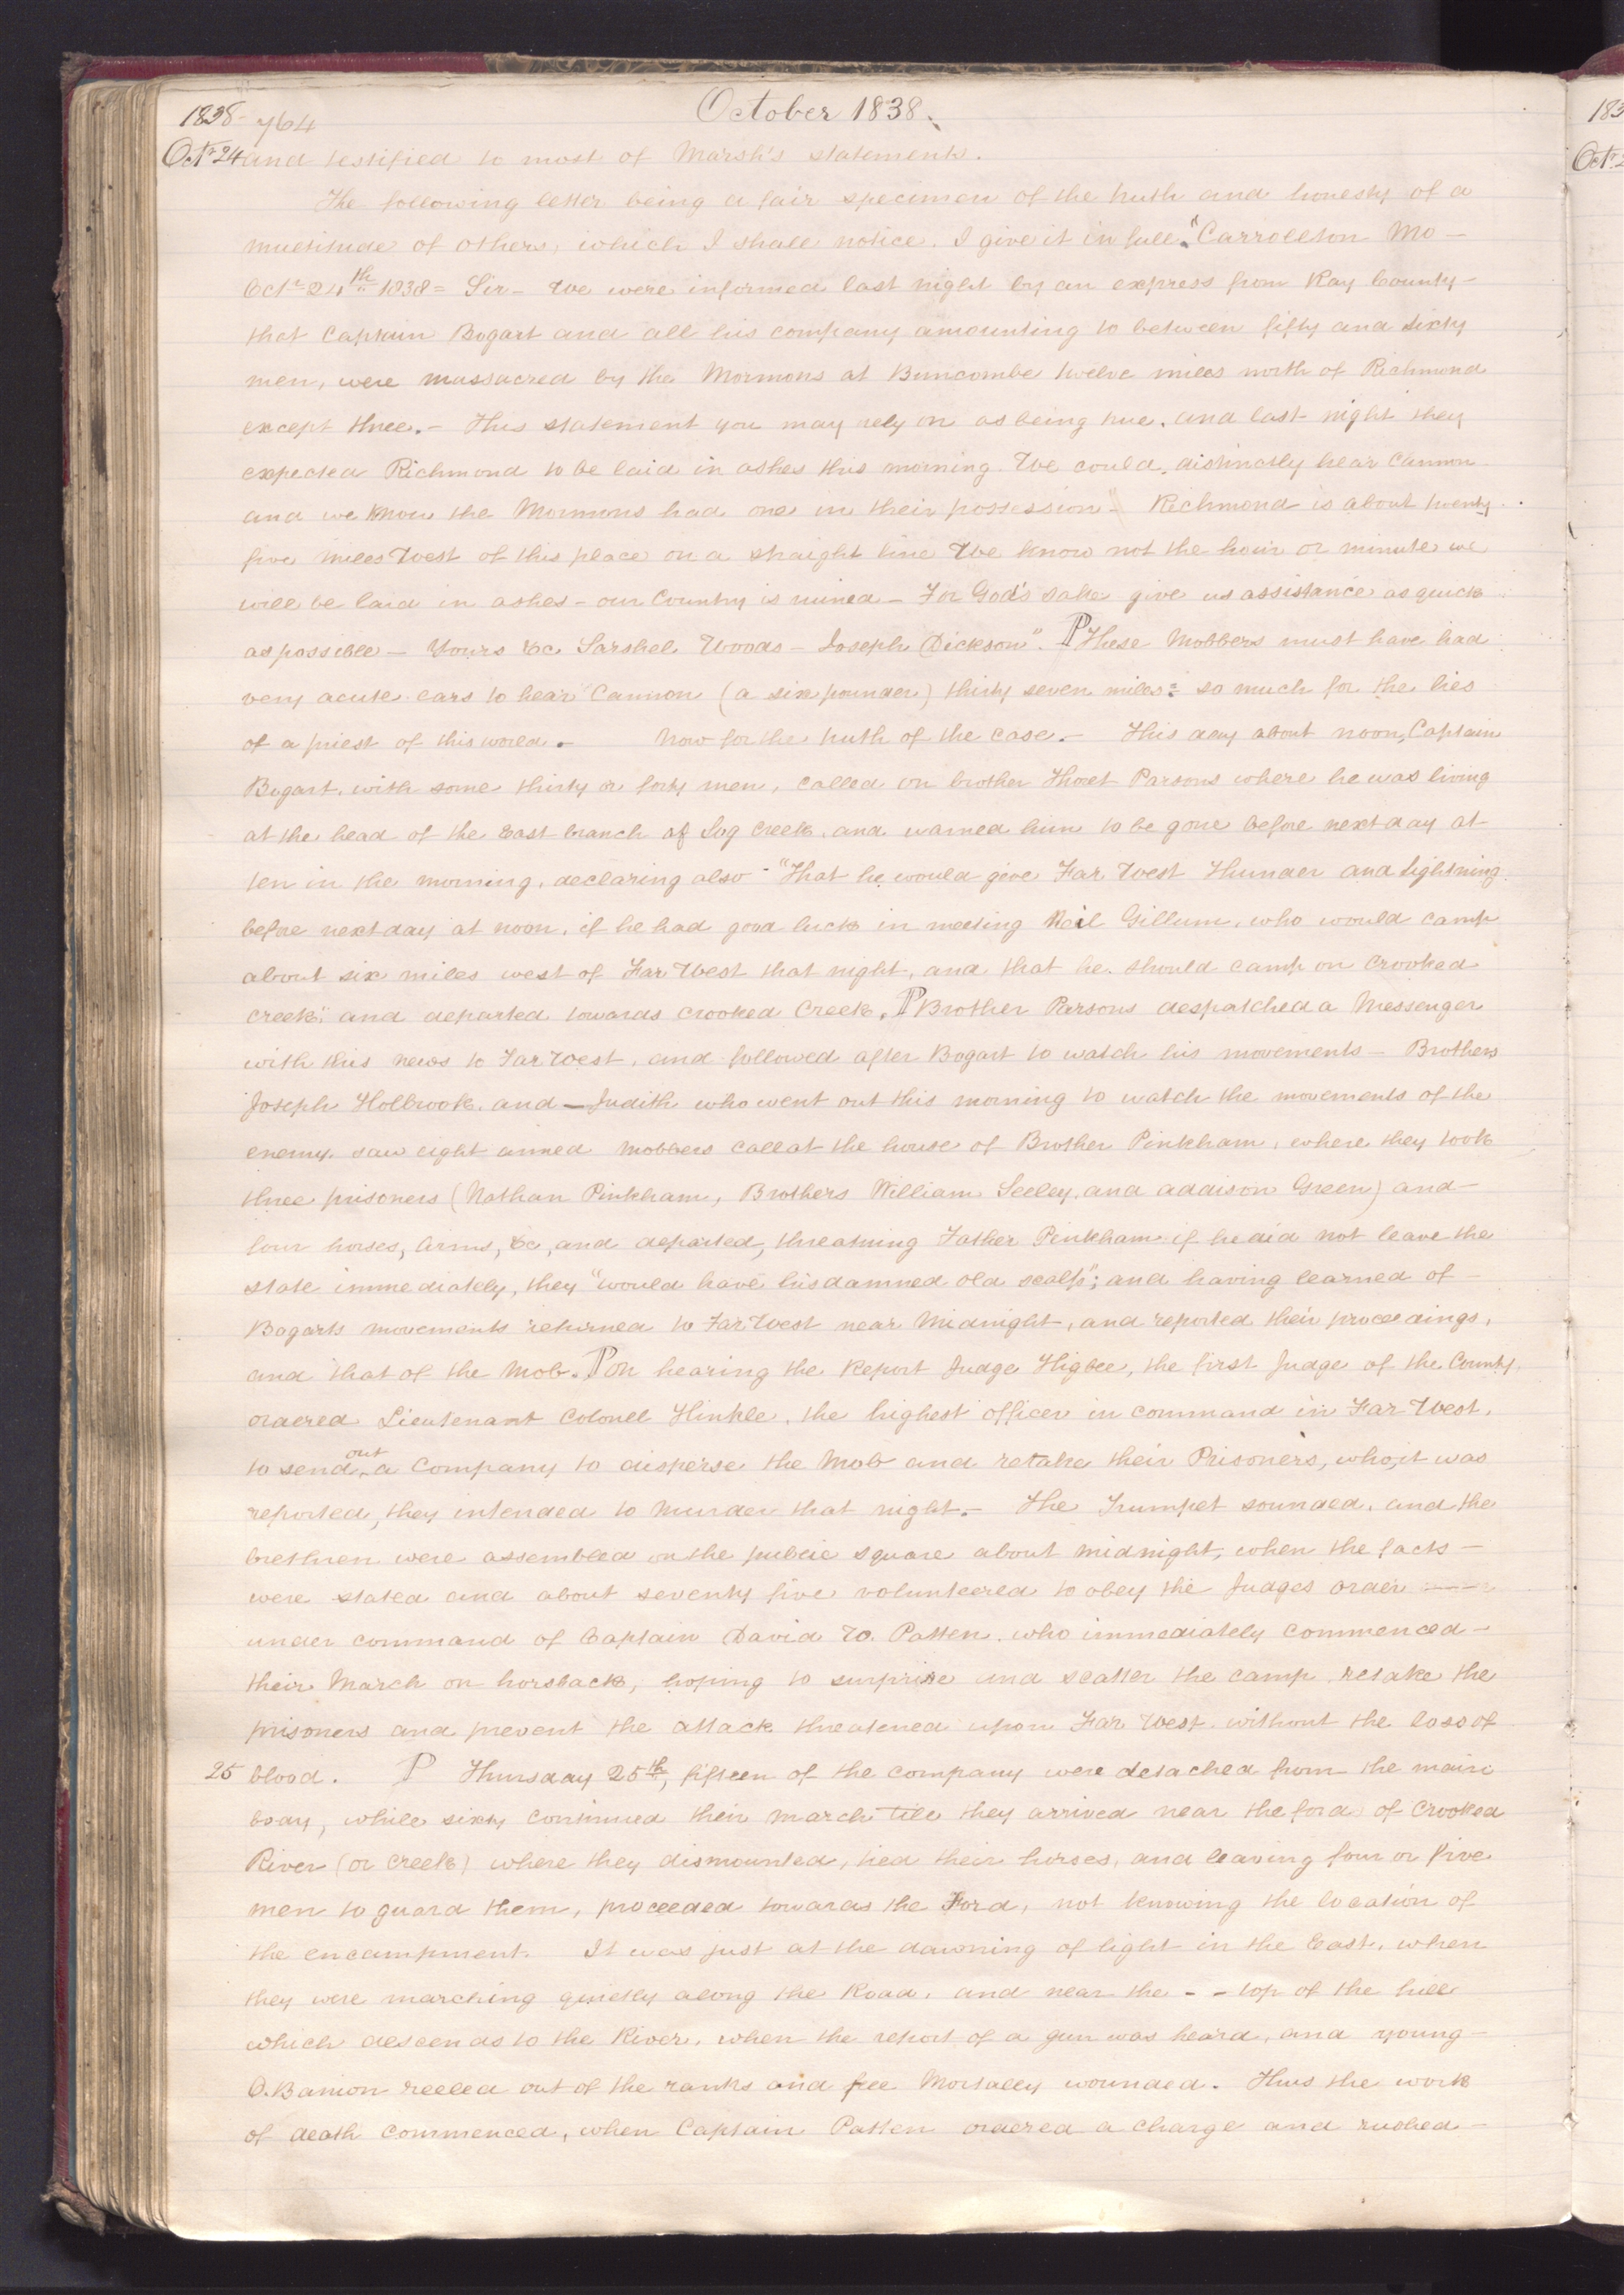 1838- 764 October 1838.
Octr. 24 and testified to most of Marsh's statements.
The following letter being a fair specimen of the truth and honesty of a
multitude of others, which I shall notice. I give it in full. "Carrollton Mo—
Octr 24th 1838= Sir— We were informed last night by an express from Ray County—
that Captain Bogart and all his company amounting to between fifty and sixty
men, were massacred by the Mormons at Buncombe twelve miles north of Richmond
except three.— This statement you may rely on as being true, and last night they
expected Richmond to be laid in ashes this morning. We could, distinctly hear Cannon
and we know the Mormons had one in their possession— Richmond is about twenty
five miles West of this place on a straight line We know not the hour or minute we
will be laid in ashes— our Country is ruined— For God's sake give us assistance as quick
as possible— Yours &c Sarshel Woods— Joseph Dickson". ¶ These Mobbers must have had
very acute ears to hear Cannon (a six pounder) thirty seven miles: so much for the lies
of a priest of this world.— Now for the truth of the case.— This day about noon, Captain
Bogart, with some thirty or forty men, called on brother Thoret Parsons where he was living
at the head of the East branch of Log Creek, and warned him to be gone before next day at
ten in the morning, declaring also— "That he would give Far West Thunder and lightning
before next day at noon, if he had good luck in meeting Neil Gillum, who would camp
about six miles west of Far West that night, and that he should camp on Crooked
creek," and departed towards Crooked Creek. ¶ Brother Parsons despatched a Messenger
with this news to Far West, and followed after Bogart to watch his movements— Brothers
Joseph Holbrook, and — Judith who went out this morning to watch the movements of the
enemy, saw eight armed mobbers call at the house of Brother Pinkham, where they took
three prisoners (Nathan Pinkham, Brothers William Seeley, and Addison Green) and—
four horses, Arms, &c, and departed, threatning Father Pinkham if he did not leave the
state immediately, they "would have his damned old scalp"; and having learned of—
Bogarts movements returned to Far West near Midnight, and reported their proceedings,
and that of the Mob. ¶ On hearing the Report Judge Higbee, the first Judge of the County,
ordered Lieutenant Colonel Hinkle, the highest officer in command in Far West,
to send out a Company to disperse the Mob and retake their Prisoners, who, it was
reported, they intended to Murder that night.— The Trumpet sounded, and the
brethren were assembled on the public square about midnight, when the facts—
were stated and about seventy five volunteered to obey the Judges order ———
under command of Captain David W. Patten, who immediately commenced—
their March on horsback, hoping to surprise and scatter the camp, retake the
prisoners and prevent the attack threatened upon Far West, without the loss of
25 blood. ¶ Thursday 25th, fifteen of the company were detached from the main
body, while sixty continued their march till they arrived near the ford of Crooked
River (or Creek) where they dismounted, tied their horses, and leaving four or five
men to guard them, proceeded towards the Ford, not knowing the location of
the encampment. It was just at the dawning of light in the East, when
they were marching quickly along the Road, and near the - - top of the hill
which descends to the River, when the report of a gun was heard, and young—
O.Banion reeled out of the ranks and fell Mortally wounded. Thus the work
of death commenced, when Captain Patten ordered a charge and rushed—
183
Oct